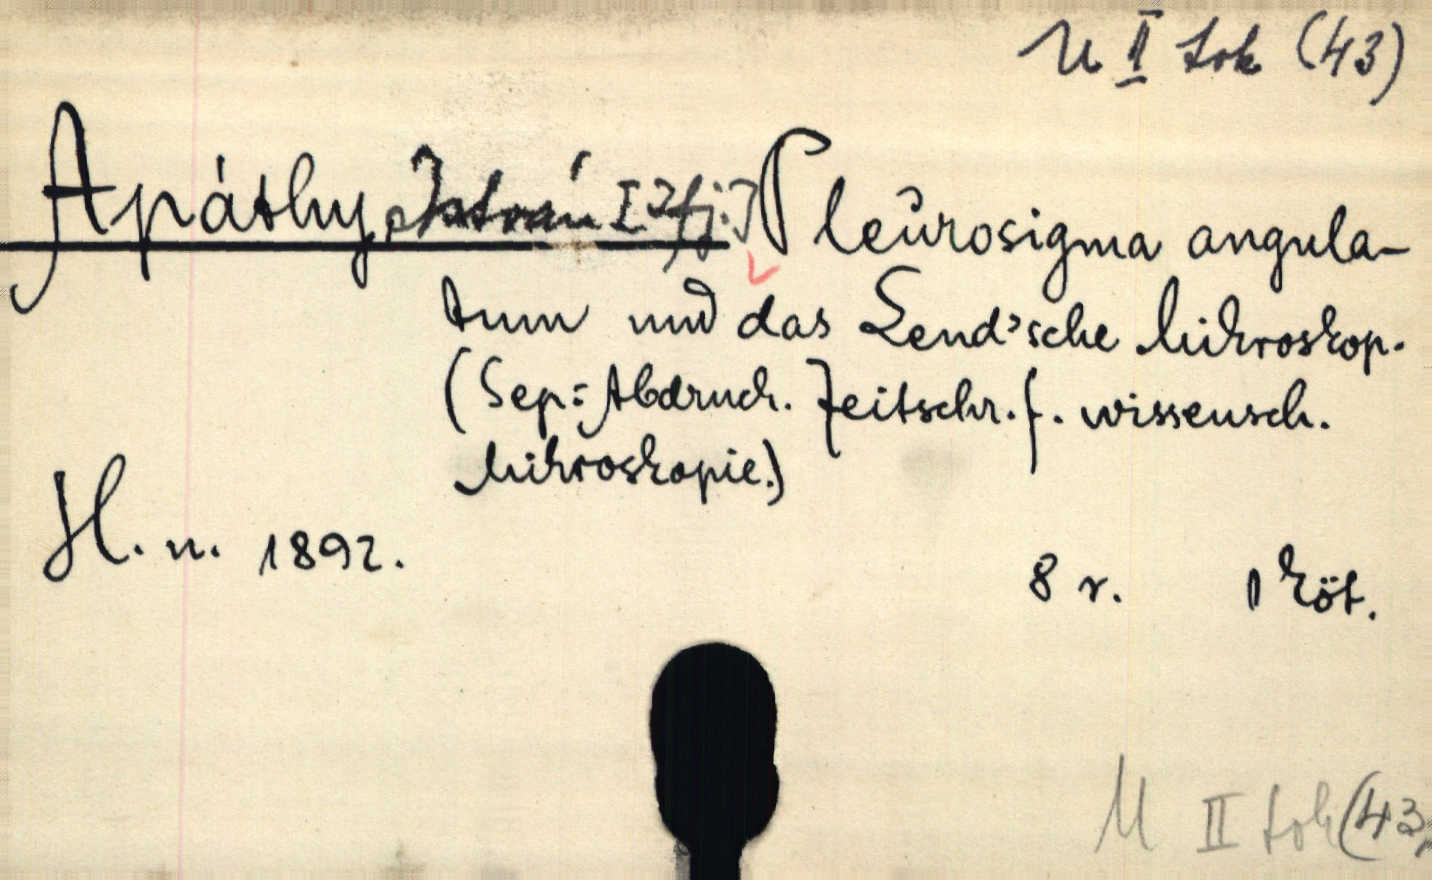 U II tok (43)
Apáthy István [ifj.] Pleurosigma angula-
tum und das Lend'sche Mikroskop.
(Sep: Abdruck. Zeitschr. f. wissensch.
Mikroskopie.)
H. n. 1892.
8 r. 1 köt.
U II tok (43)